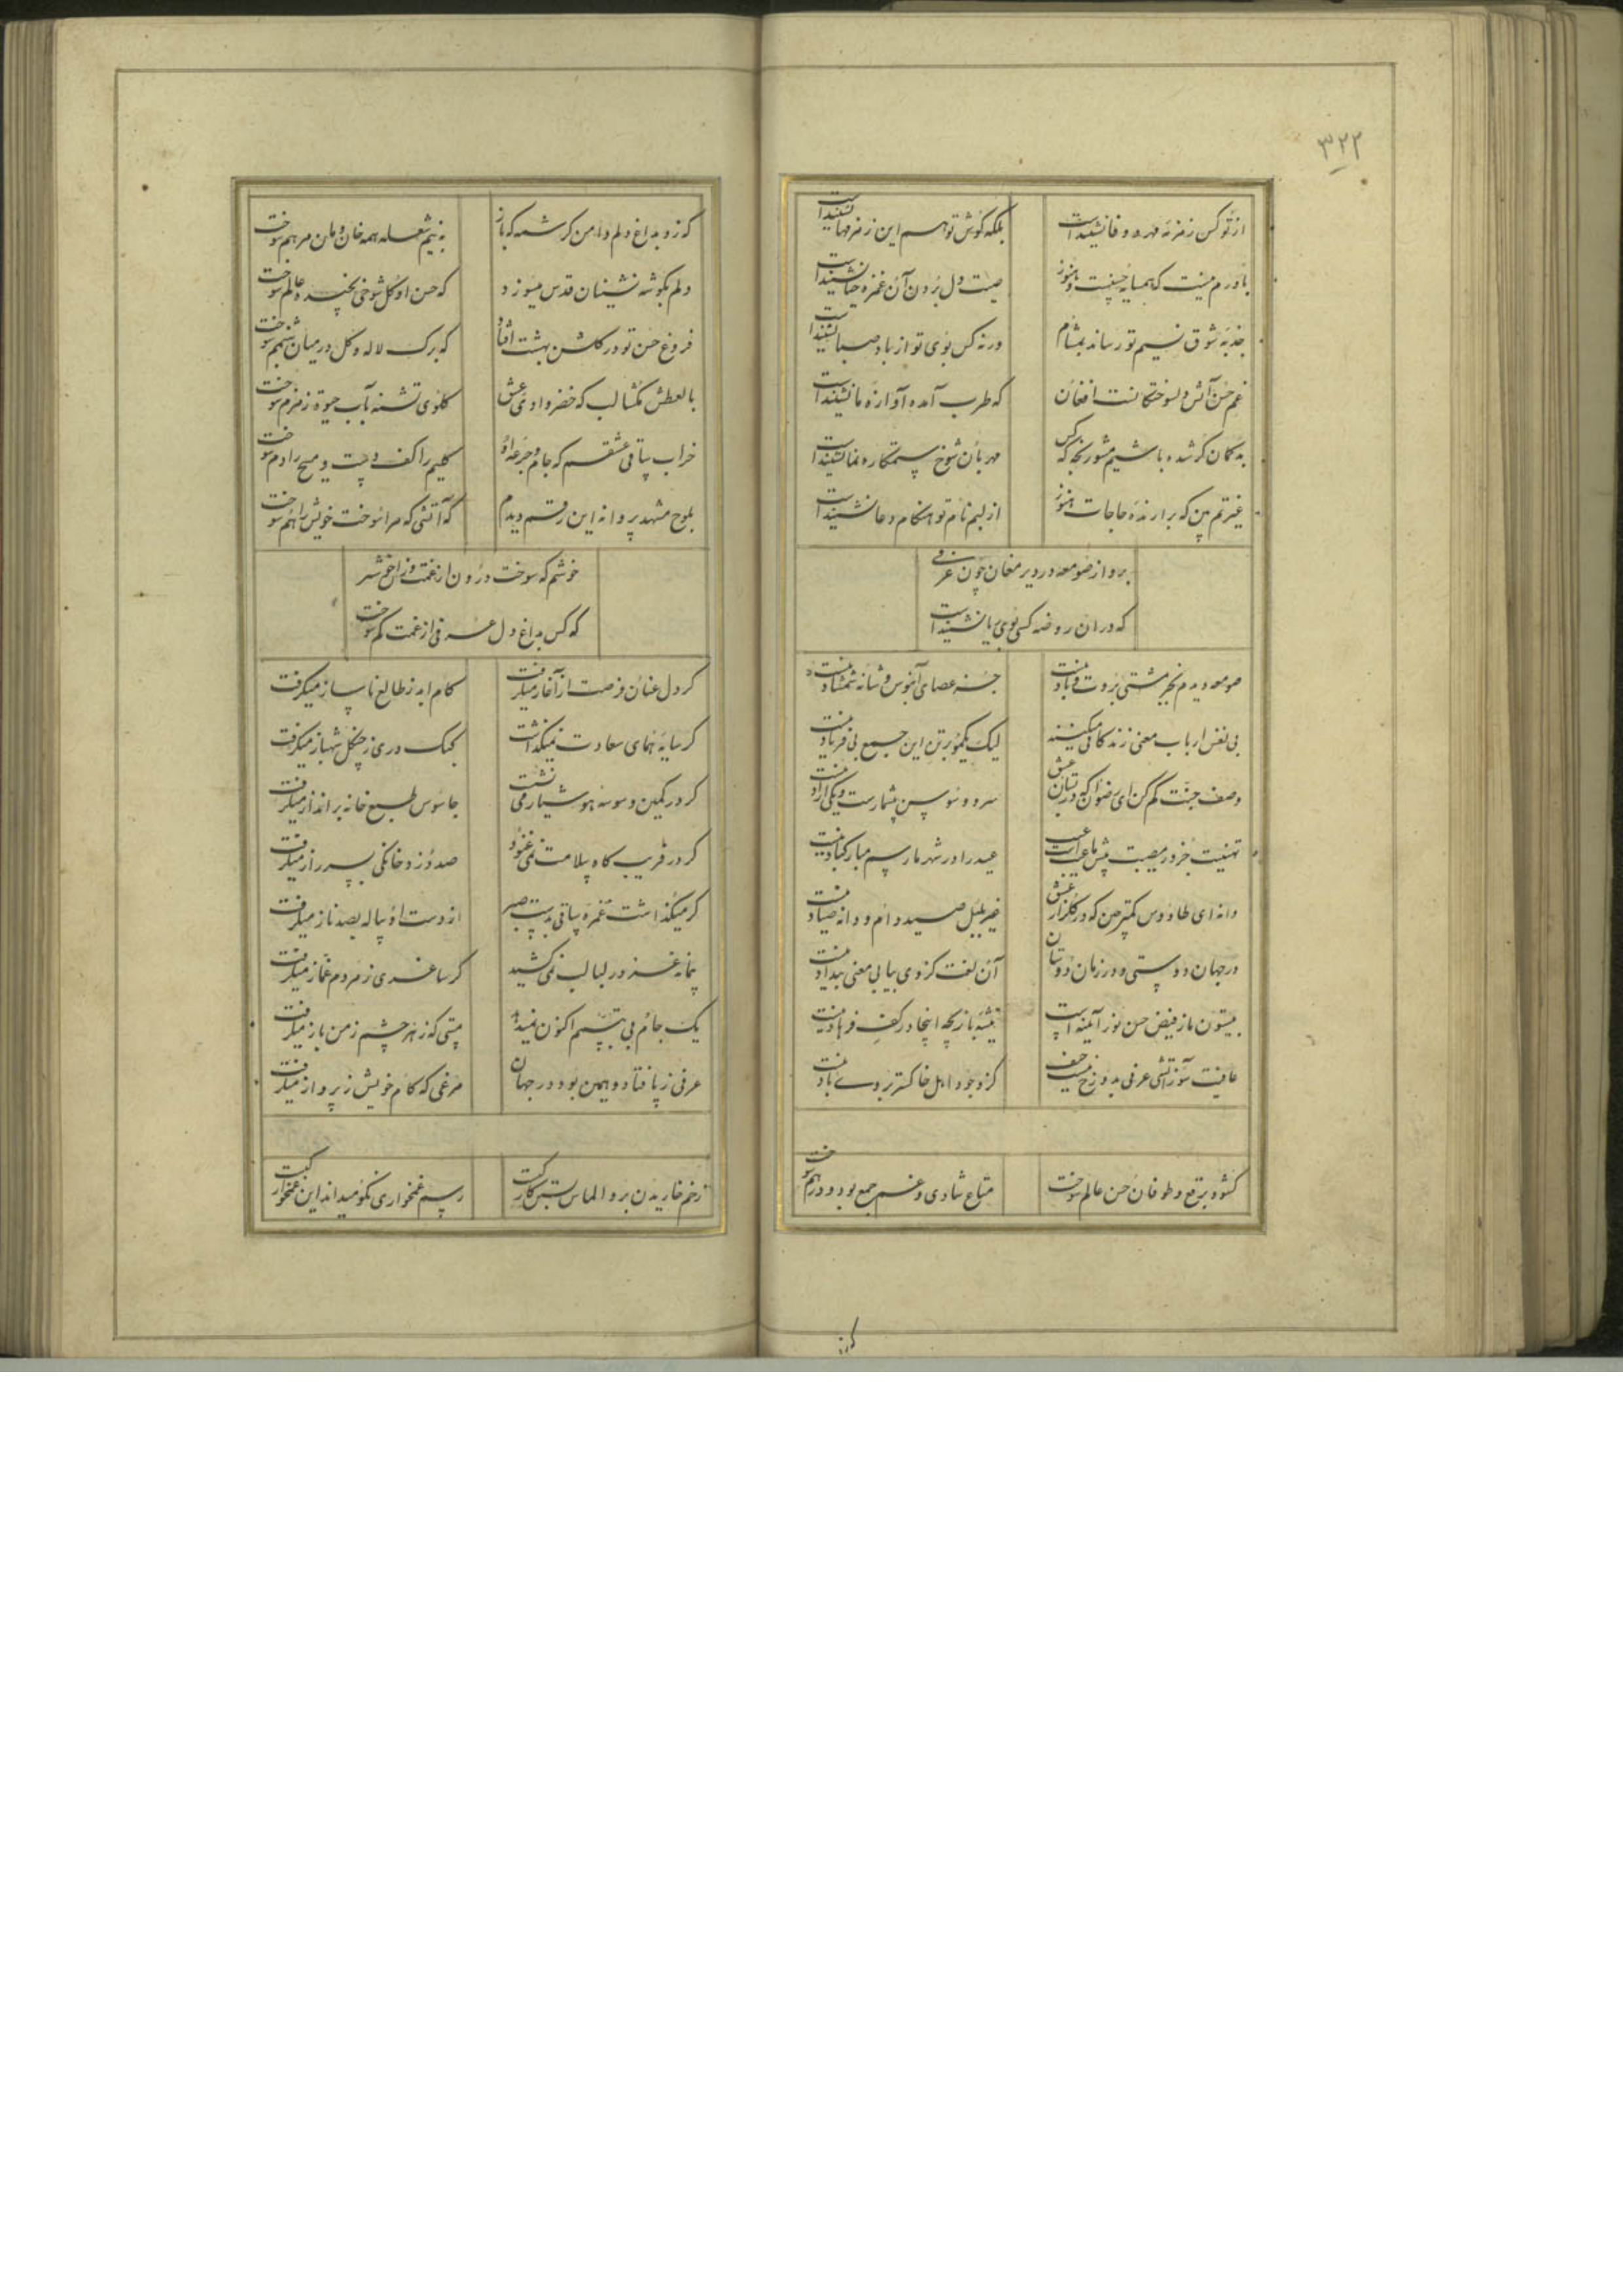 ۳۲۲
از تو کس زمزمه مهر و وفا نشنیدست بلکه گوش تو هم این زمزمها نشنیدست
باورم نیست که همسایه حسنست و هنوز صیت دل بردن آن غمزه حیا نشنیدست
جذبه شوق نسیم تو رساند بمشام ورنه کس بوی تو از باد صبا نشنیدست
غم حسن آتش دلسوختگانست افغان که طرب آمده آوازه ما نشنیدست
بدگمان گر شده باشیم مشو رنجه که کس مهربان شوخ ستمکاره نما نشنیدست
غیرتم بین که برارنده حاجات هنوز از لبم نام تو هنگام دعا نشنیدست
برو از صومعه در دیر مغان چون عرفی
که در ان روضه کسی بوی ریا نشنیدست
صومعه دیدم بجز مشتی بروت و باد نیست جز عصای آبنوس و شانه شمشاد نیست
بی نفس ارباب معنی زندگانی میکنند لیک یکمو بر تن این جمع بی فریاد نیست
وصف جنت کم کن ای رضوان که در بستان عشق سرو و سوسن بیشمارست و یکی آزاد نیست
تهنیت جز در مصیبت پیش ما عیبست عیب عید را در شهر ما رسم مبارکباد نیست
دانه ای طاوس کمتر چین که در گلزار عشق غیر بلبل صید دام و دانه صیاد نیست
در جهان دوستی و در زمان دوستان آن لغت کز وی بیابی معنی بیداد نیست
بیستون ما ز فیض حسن نور آیینه است تیشه بازیچه اینجا در کف فرهاد نیست
عاقبت سوز آتشی عرفی بدوزخ نیست حیف کز وجود اهل خاکستر بروی باد نیست
گشود برقع و طوفان حسن عالم سوخت متاع شادی و غم جمع بود و در هم سوخت
که زد بداغ دلم دامن کرشمه که باز به نیم شعله همه خان و مان مرهم سوخت
دلم بگوشه نشینان قدس میسوزد که حسن او گل شوخی نچیده و عالم سوخت
فروغ حسن تو در گلشن بهشت افتاد که برگ لاله و گل در میان شبنم سوخت
بالعطش نگشا لب که خضر وادی عشق گلوی تشنه بآب حیوة زمزم سوخت
خراب ساقی عشقم که جام و جرعه او کلیم را کف دست و مسیح را دم سوخت
بلوح مشهد پروانه این رقم دیدم که آتشی که مرا سوخت خویش را هم سوخت
خوشم که سوخت درون از غمت
که کس بداغ دل عرفی از غمت کم سوخت
گر دل عنان فرصت از آغاز میگرفت کام ابد ز طالع ناساز میگرفت
گر سایه همای سعادت نمیگذاشت کبک دری ز چنگل شهباز میگرفت
گر در کمین وسوسه هوشیار می نشست جاسوس طبع خانه برانداز میگرفت
گر در فریب گاه سلامت نمی غنود صد دزد خانگی بسر راز میگرفت
گر میگذاشت غمزه ساقی بدست صبر از دست او پیاله بصد ناز میگرفت
پیمانه غرور لبالب نمی کشید گر ساغری ز مردم غماز میگرفت
یک جام بی تبسم اکنون نمیدهد مستی که زهر چشم ز من باز میگرفت
عرفی ز پا فتاد و همین بود در جهان مرغی که کام خویش ز پرواز میگرفت
زخم خاریدن برو الماس بستن کار کیست رسم غمخواری نکو میداند این غمخوار کیست